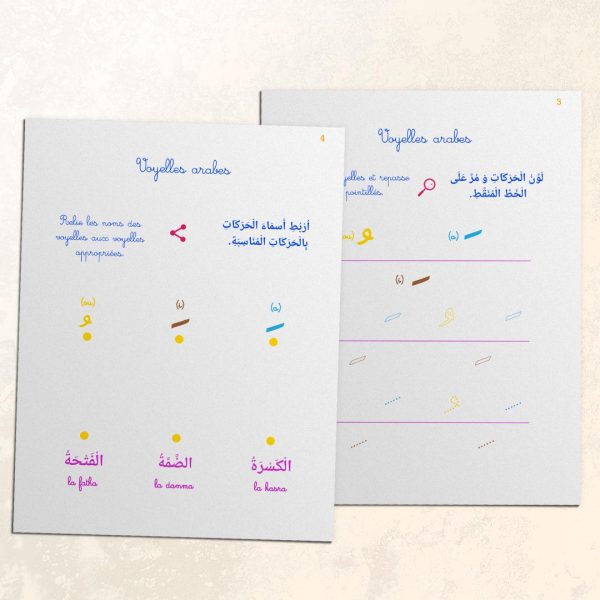 4
Voyelles arabes
Relie les noms des
voyelles aux voyelles
appropriées.
أرْبُطِ أَسمَاءَ الْحَرَكَاتِ
بِالْحَرَكَاتِ الْمُنَاسِبَةِ.
(ou) (i) (a)
الْفَتْحَةُ الضَّمَّةُ الْكَسْرَةُ
la fatha la damma la kasra
3
Voyelles arabes
yelles et repasse
pointillés.
لَوِّنْ الْحَرَكَاتِ وَ مُرَّ عَلَى
الْخَطِّ الْمُنَقَّطِ.
(ou) (a)
(i)